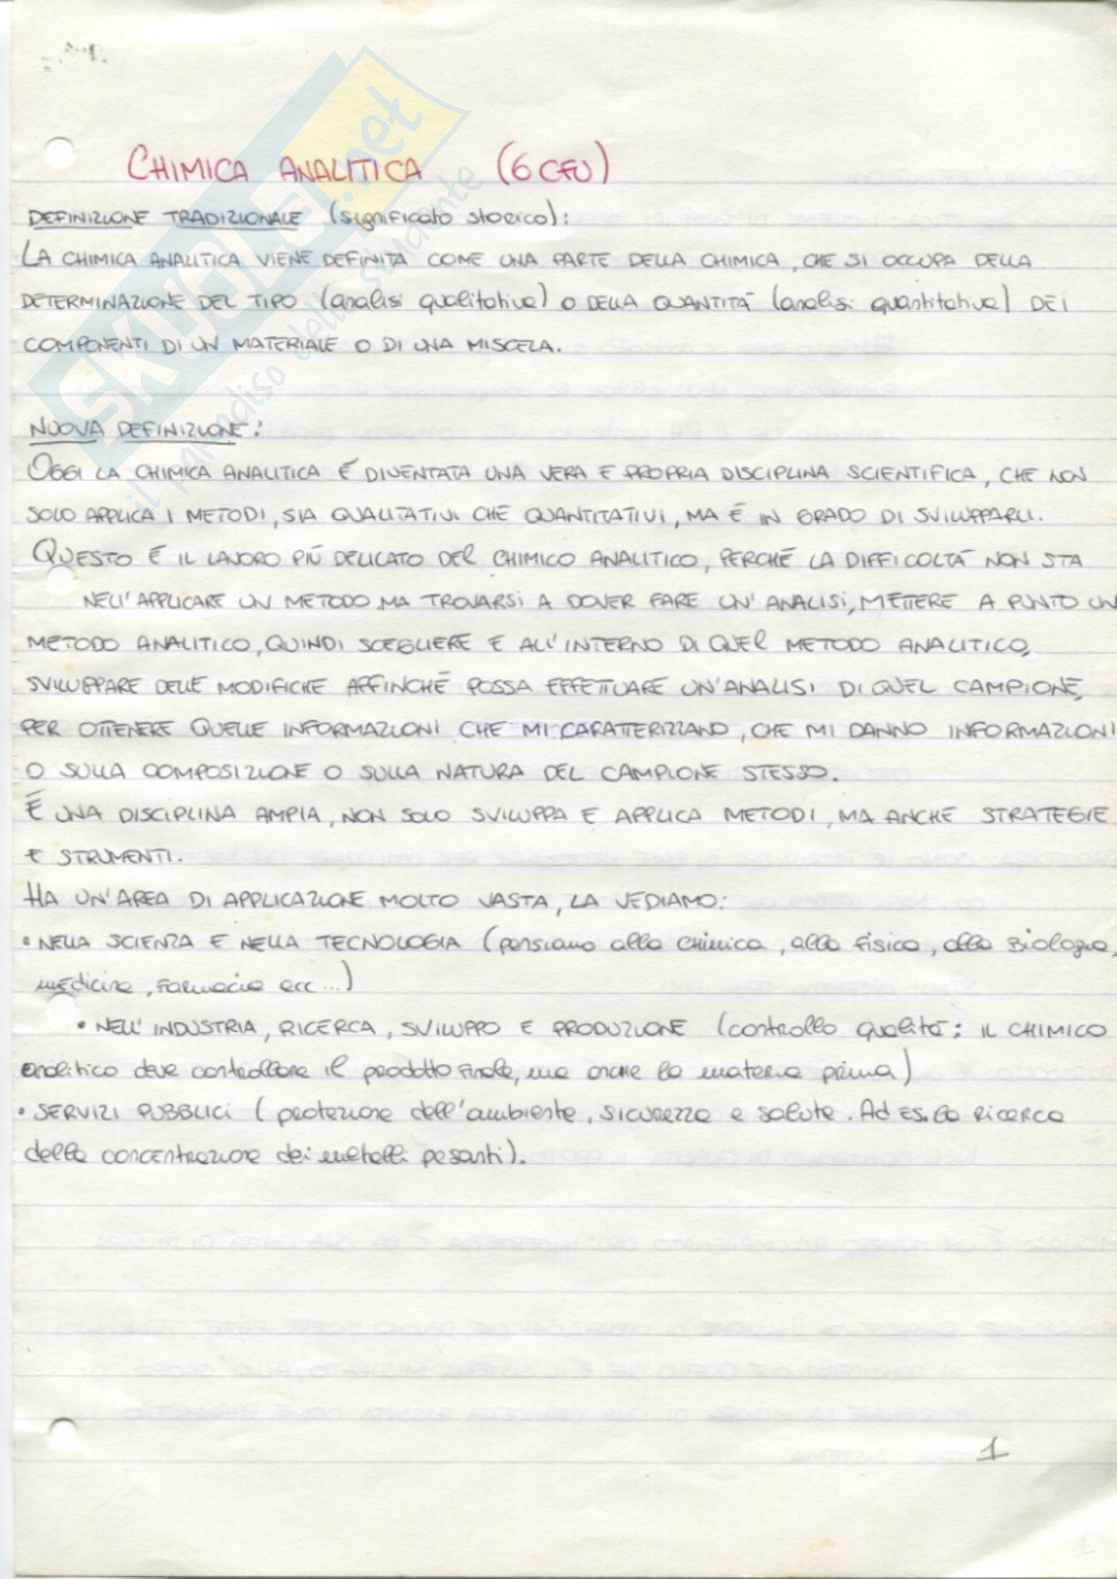 CHIMICA ANALITICA (6 CFU)
DEFINIZIONE TRADIZIONALE (significato storico):
LA CHIMICA ANALITICA VIENE DEFINITA COME UNA PARTE DELLA CHIMICA, CHE SI OCCUPA DELLA
DETERMINAZIONE DEL TIPO (analisi qualitativa) O DELLA QUANTITÁ (analisi quantitativa) DEI
COMPONENTI DI UN MATERIALE O DI UNA MISCELA.
NUOVA DEFINIZIONE:
OGGI LA CHIMICA ANALITICA É DIVENTATA UNA VERA E PROPRIA DISCIPLINA SCIENTIFICA, CHE NON
SOLO APPLICA I METODI, SIA QUALITATIVI CHE QUANTITATIVI, MA É IN GRADO DI SVILUPPARLI.
QUESTO É IL LAVORO PIÚ DELICATO DEL CHIMICO ANALITICO, PERCHÉ LA DIFFICOLTÁ NON STA
NELL'APPLICARE UN METODO MA TROVARSI A DOVER FARE UN'ANALISI, METTERE A PUNTO UN
METODO ANALITICO, QUINDI SCEGLIERE E ALL'INTERNO DI QUEL METODO ANALITICO,
SVILUPPARE DELLE MODIFICHE AFFINCHÉ POSSA EFFETTUARE UN'ANALISI DI QUEL CAMPIONE,
PER OTTENERE QUELLE INFORMAZIONI CHE MI CARATTERIZZANO, CHE MI DANNO INFORMAZIONI
O SULLA COMPOSIZIONE O SULLA NATURA DEL CAMPIONE STESSO.
É UNA DISCIPLINA AMPIA, NON SOLO SVILUPPA E APPLICA METODI, MA ANCHE STRATEGIE
E STRUMENTI.
HA UN'AREA DI APPLICAZIONE MOLTO VASTA, LA VEDIAMO:
• NELLA SCIENZA E NELLA TECNOLOGIA (pensiamo alla chimica, alla fisica, alla Biologia,
medicina, farmacia ecc...)
• NELL'INDUSTRIA, RICERCA, SVILUPPO E PRODUZIONE (controllo qualitá: IL CHIMICO
analitico deve controllare il prodotto finale, ma anche la materia prima)
• SERVIZI PUBBLICI (protezione dell'ambiente, sicurezza e salute. Ad es. la ricerca
della concentrazione dei metalli pesanti).
1
SKUOLA.net
il paradiso dello studente